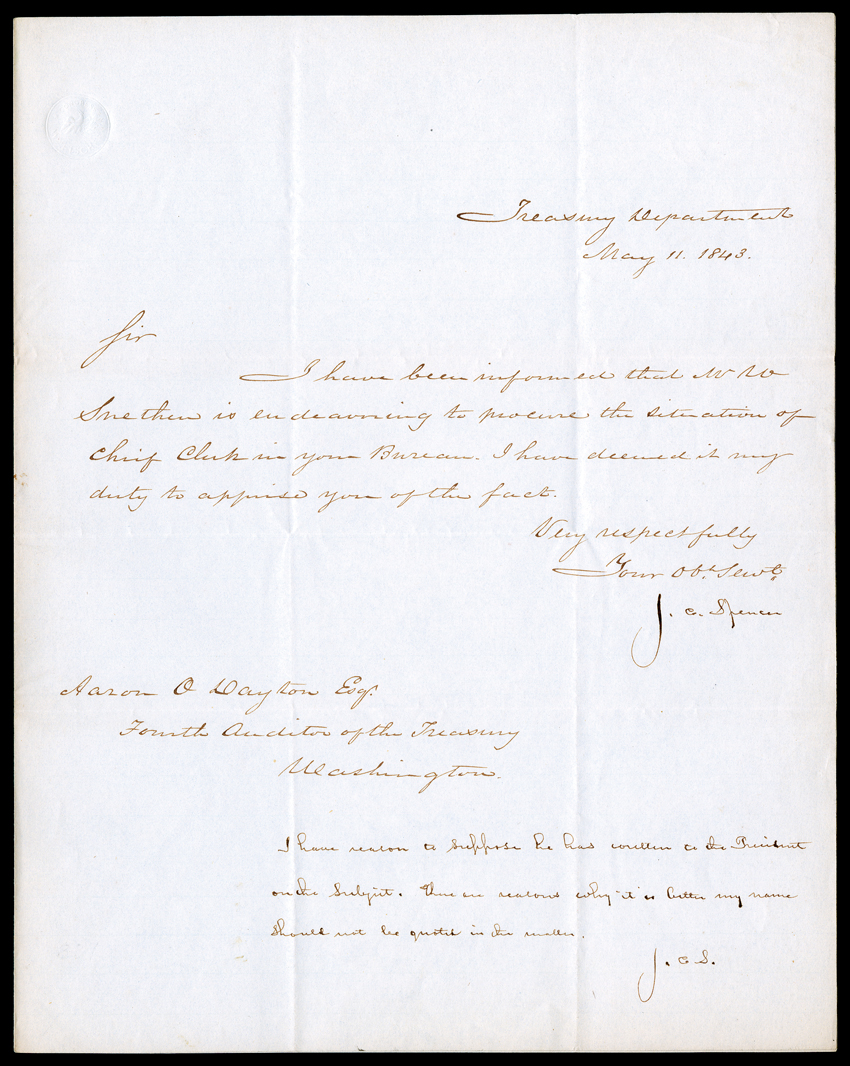 Treasury Department
May 11. 1843.
Sir
I have been informed that Mr W
Snethen is endeavoring to procure the situation of
Chief Clerk in your Bureau. I have deemed it my
duty to apprise you of the fact.
Very respectfully
Your Obt. Servt.
J. C. Spencer
Aaron O Dayton Esq.
Fourth Auditor of the Treasury
Washington.
I have reason to suppose he has written to the President
on the subject. There are reasons why it is better my name
should not be quoted in the matter.
J. C. S.